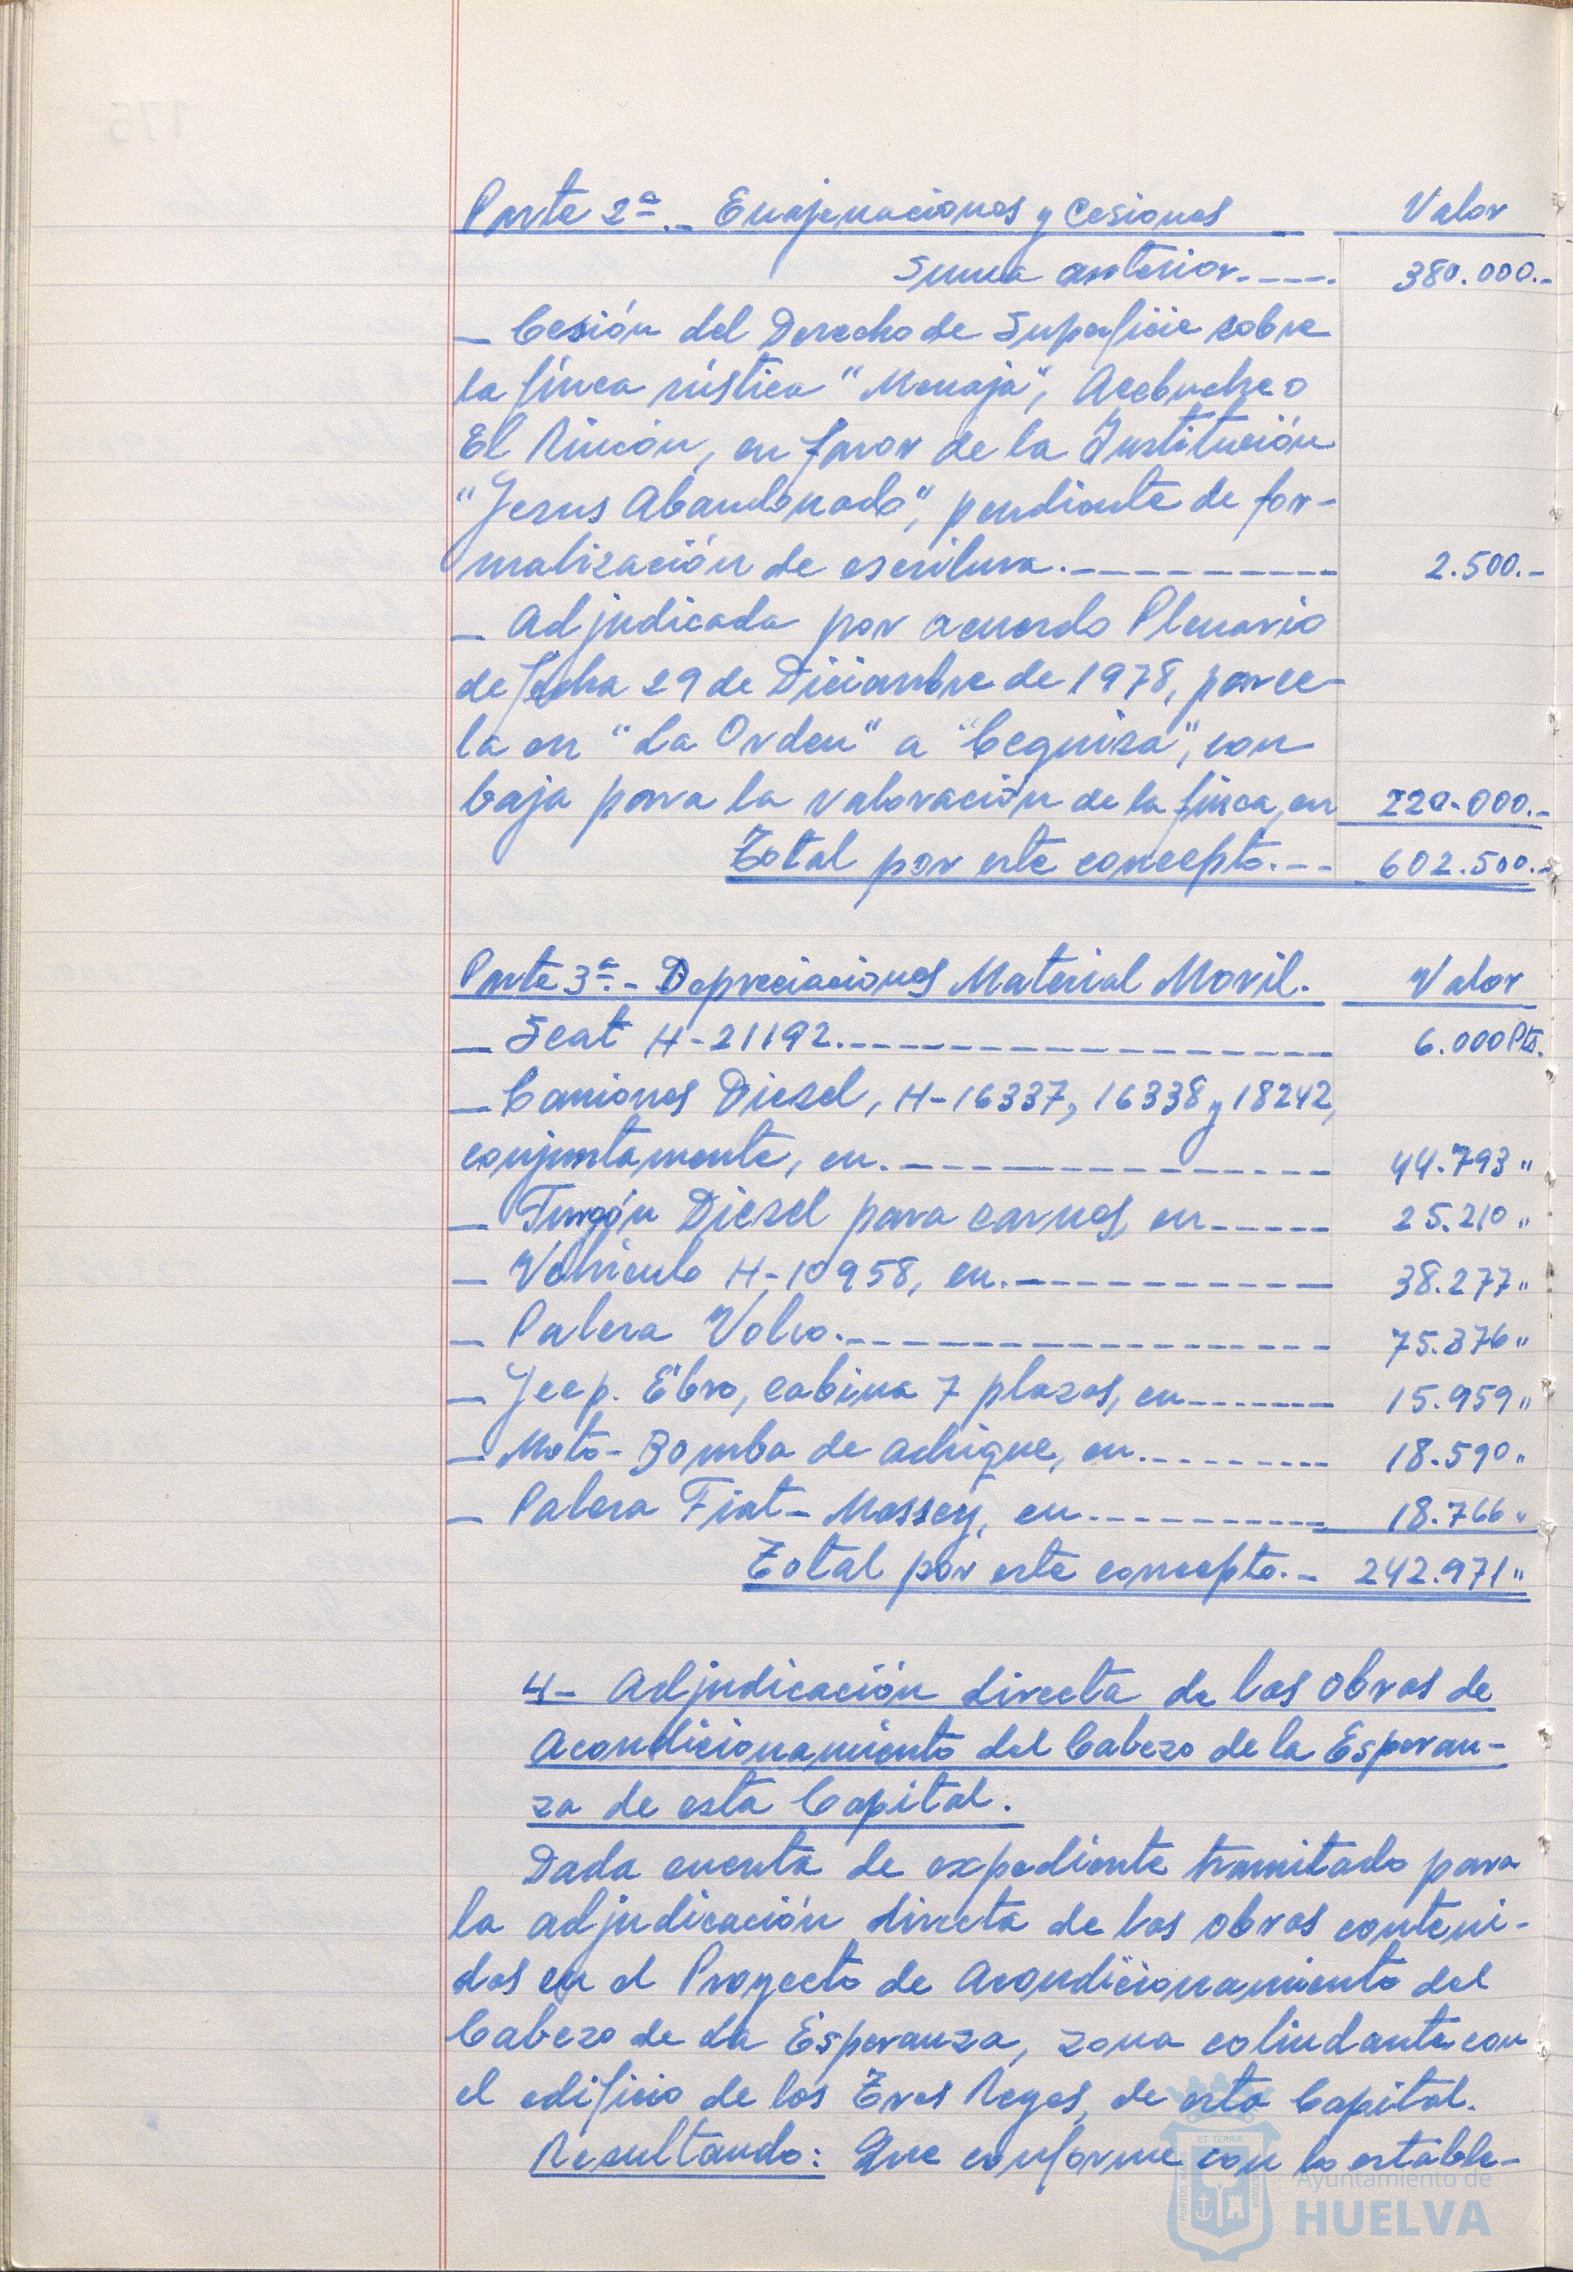 Parte 2ª.- Enajenaciones y Cesiones Valor
Suma anterior.---- 380.000.-
- Cesión del Derecho de Superficie sobre
la finca rústica "Monaja", Acebuche o
El Rincón, en favor de la Institución
"Jesus Abandonado", pendiente de for-
malización de escritura.--------- 2.500.-
- Adjudicada por acuerdo Plenario
de fecha 29 de Diciembre de 1978, parce-
la en "La Orden" a "Cequisa", con
baja para la valoración de la finca, en 220.000.-
Total por este concepto.-- 602.500.-
Parte 3ª.- Depreciaciones Material Movil. Valor
- Seat H-21192.---------------- 6.000 Pts.
- Camiones Diesel, H-16337, 16338 y 18242,
conjuntamente, en.-------------- 44.793 "
- Furgón Diesel para carnes en----- 25.210 "
- Vehiculo H-10958, en.----------- 38.277 "
- Palera Volvo.---------------- 75.376 "
- Jeep. Ebro, cabina 7 plazas, en------- 15.959 "
- Moto-Bomba de achique, en.-------- 18.590 "
- Palera Fiat-Massey, en---------- 18.766 "
Total por este concepto.- 242.971 "
4- Adjudicación directa de las obras de
Acondicionamiento del Cabezo de la Esperan-
za de esta Capital.
Dada cuenta de expediente tramitado para
la adjudicación directa de las obras conteni-
das en el Proyecto de Acondicionamiento del
Cabezo de La Esperanza, zona colindante con
el edificio de los Tres Reyes, de esta Capital.
Resultando: Que conforme con lo estable-
Ayuntamiento de
HUELVA